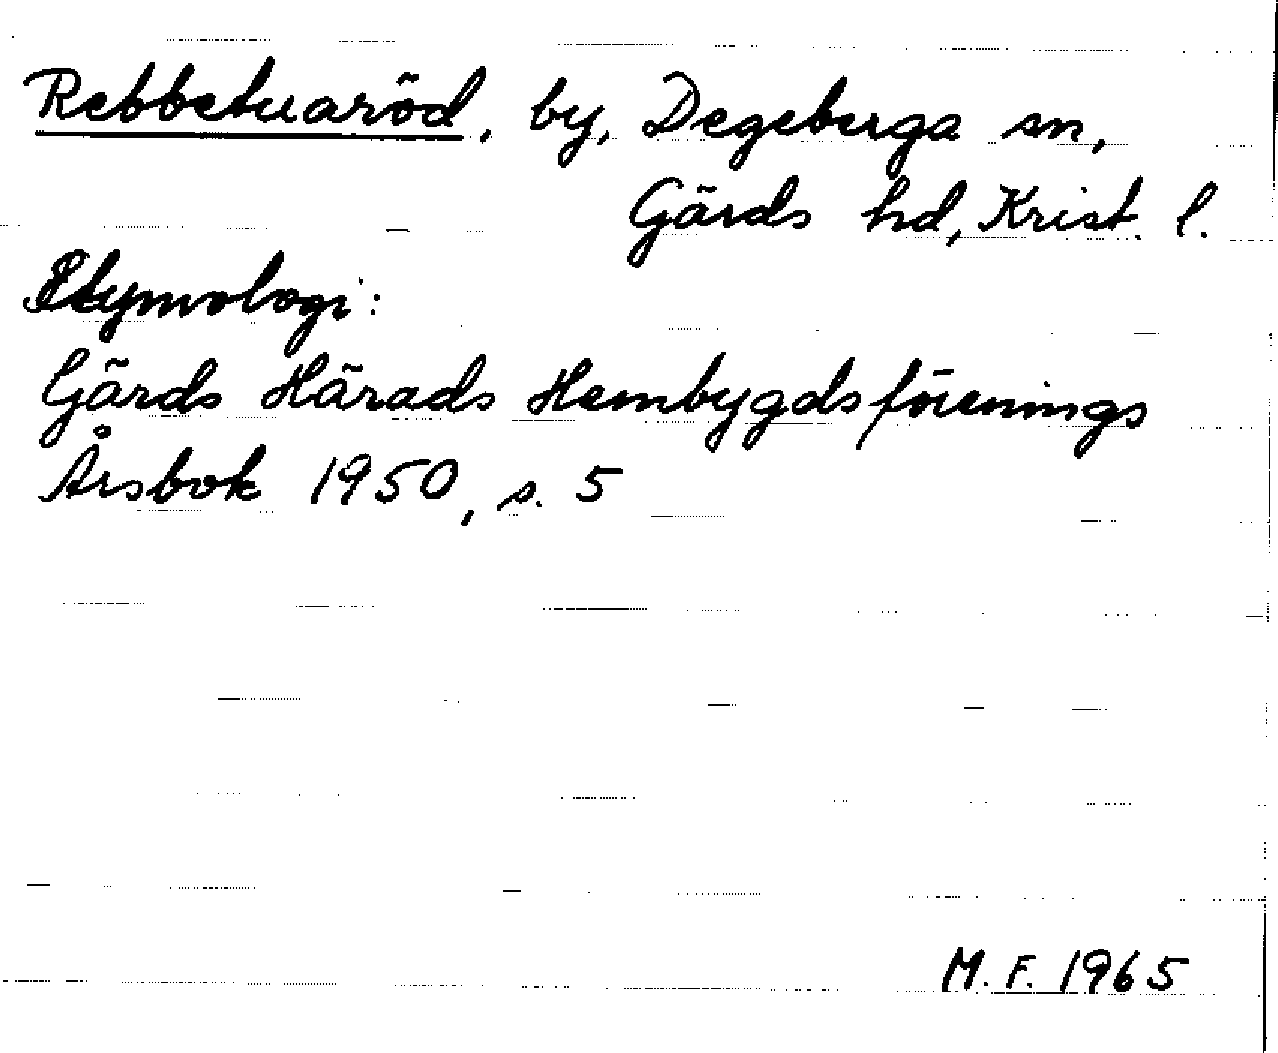 Rebbetuaröd, by, Degeberga sn,
Gärds hd, Krist. l.
Etymologi:
Gärds Härads Hembygdsförenings
Årsbok 1950, s. 5
M.F. 1965